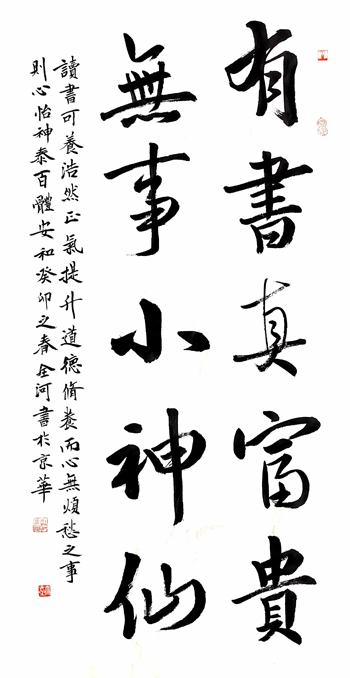 有書真富貴
無事小神仙
讀書可養浩然正氣提升道德脩養而心無煩愁之事
則心怡神泰百體安和癸卯之春全河書於京華